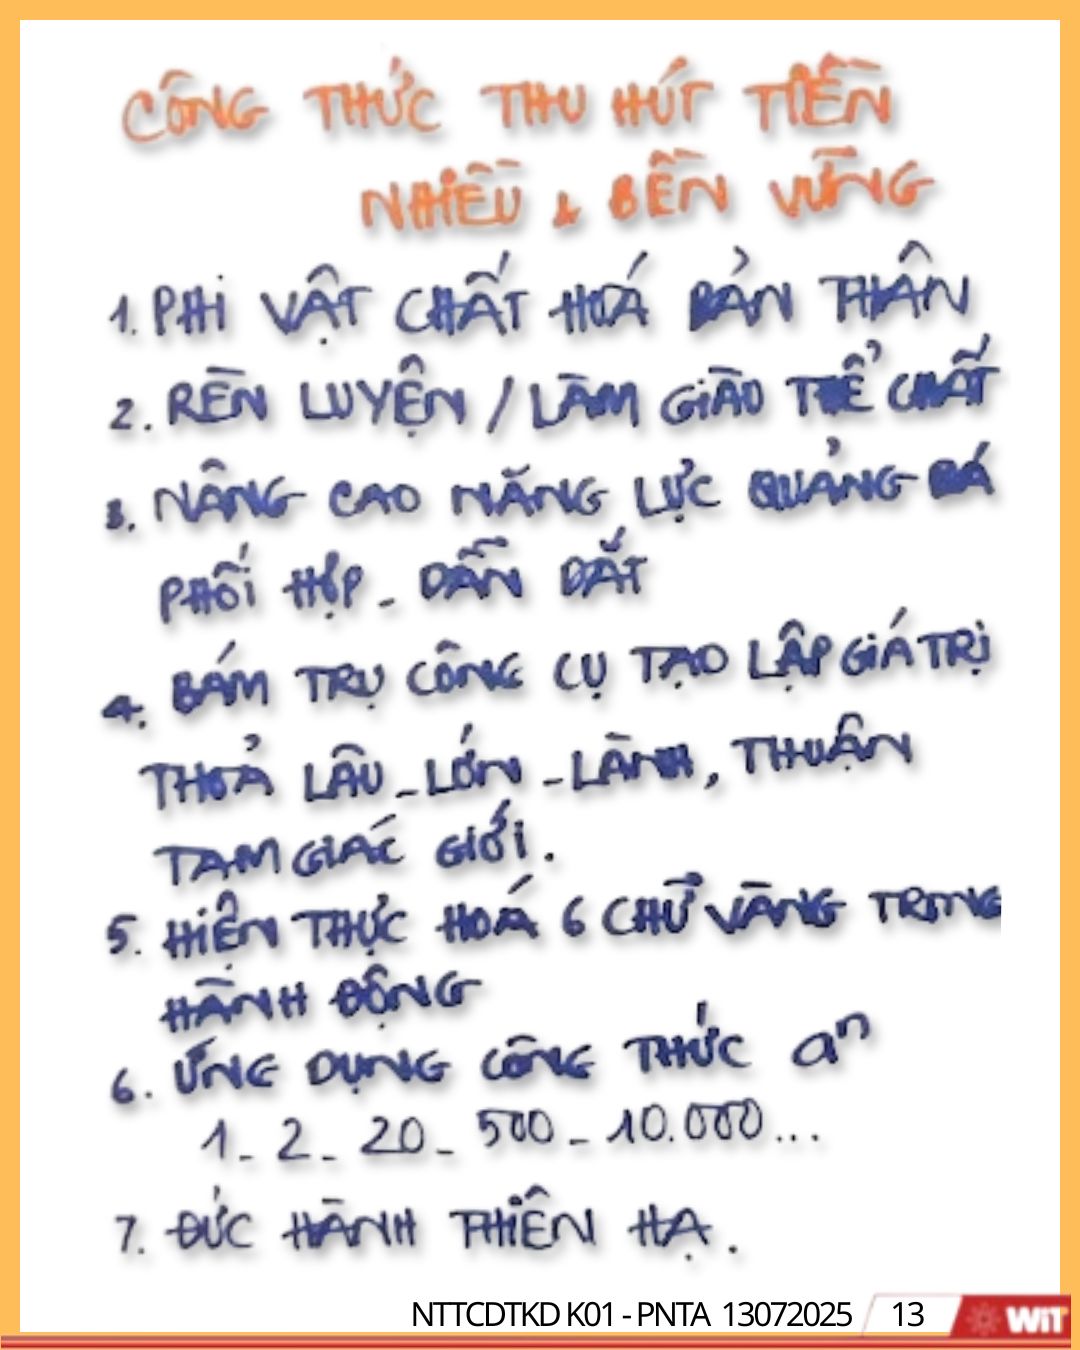 CÔNG THỨC THU HÚT TIỀN
NHIỀU & BỀN VỮNG
1. PHI VẬT CHẤT HOÁ BẢN THÂN
2. RÈN LUYỆN / LÀM GIÀU THỂ CHẤT
3. NÂNG CAO NĂNG LỰC QUẢNG BÁ
PHỐI HỢP - DẪN DẮT
4. BÁM TRỤ CÔNG CỤ TẠO LẬP GIÁ TRỊ
THOẢ LÂU - LỚN - LÀNH, THUẬN
TAM GIÁC GIỚI.
5. HIỆN THỰC HOÁ 6 CHỮ VÀNG TRONG
HÀNH ĐỘNG
6. ỨNG DỤNG CÔNG THỨC aⁿ
1 - 2 - 20 - 500 - 10.000...
7. ĐỨC HÀNH THIÊN HẠ.
NTTCDTKD K01 - PNTA 13072025 13 WiT